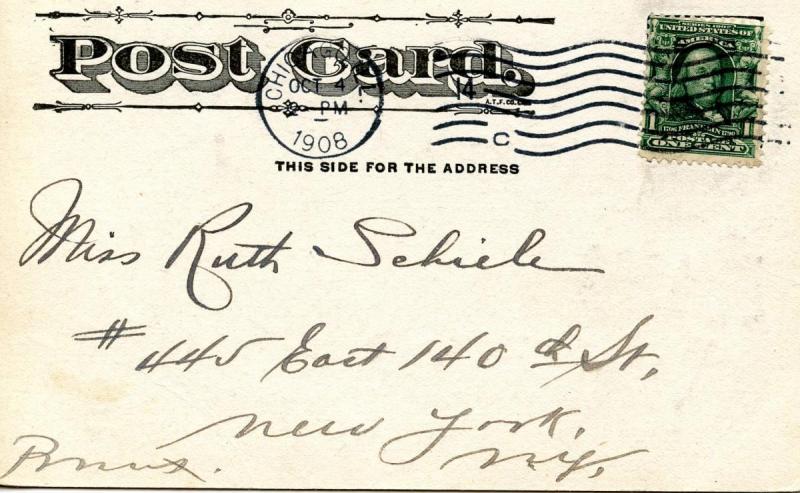 Post Card.
CHICAGO
OCT 4
2 - PM
1908
14
C
A.T.F. CO.
SERIES 1902
UNITED STATES OF
AMERICA
1706 FRANKLIN 1790
1 1
POSTAGE
ONE CENT
THIS SIDE FOR THE ADDRESS
Miss Ruth Schiele
# 445 East 140th St.
New York,
Bronx. N.Y.